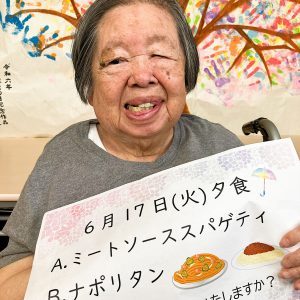 令和六年
6月17日(火)夕食
A.ミートソーススパゲティ
B.ナポリタン
たしますか?